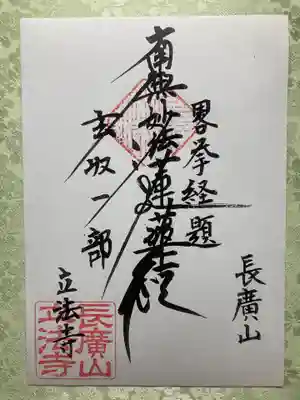 畧挙経題
南無妙法蓮華経
玄収一部
長廣山
立法寺
長廣山
立法寺